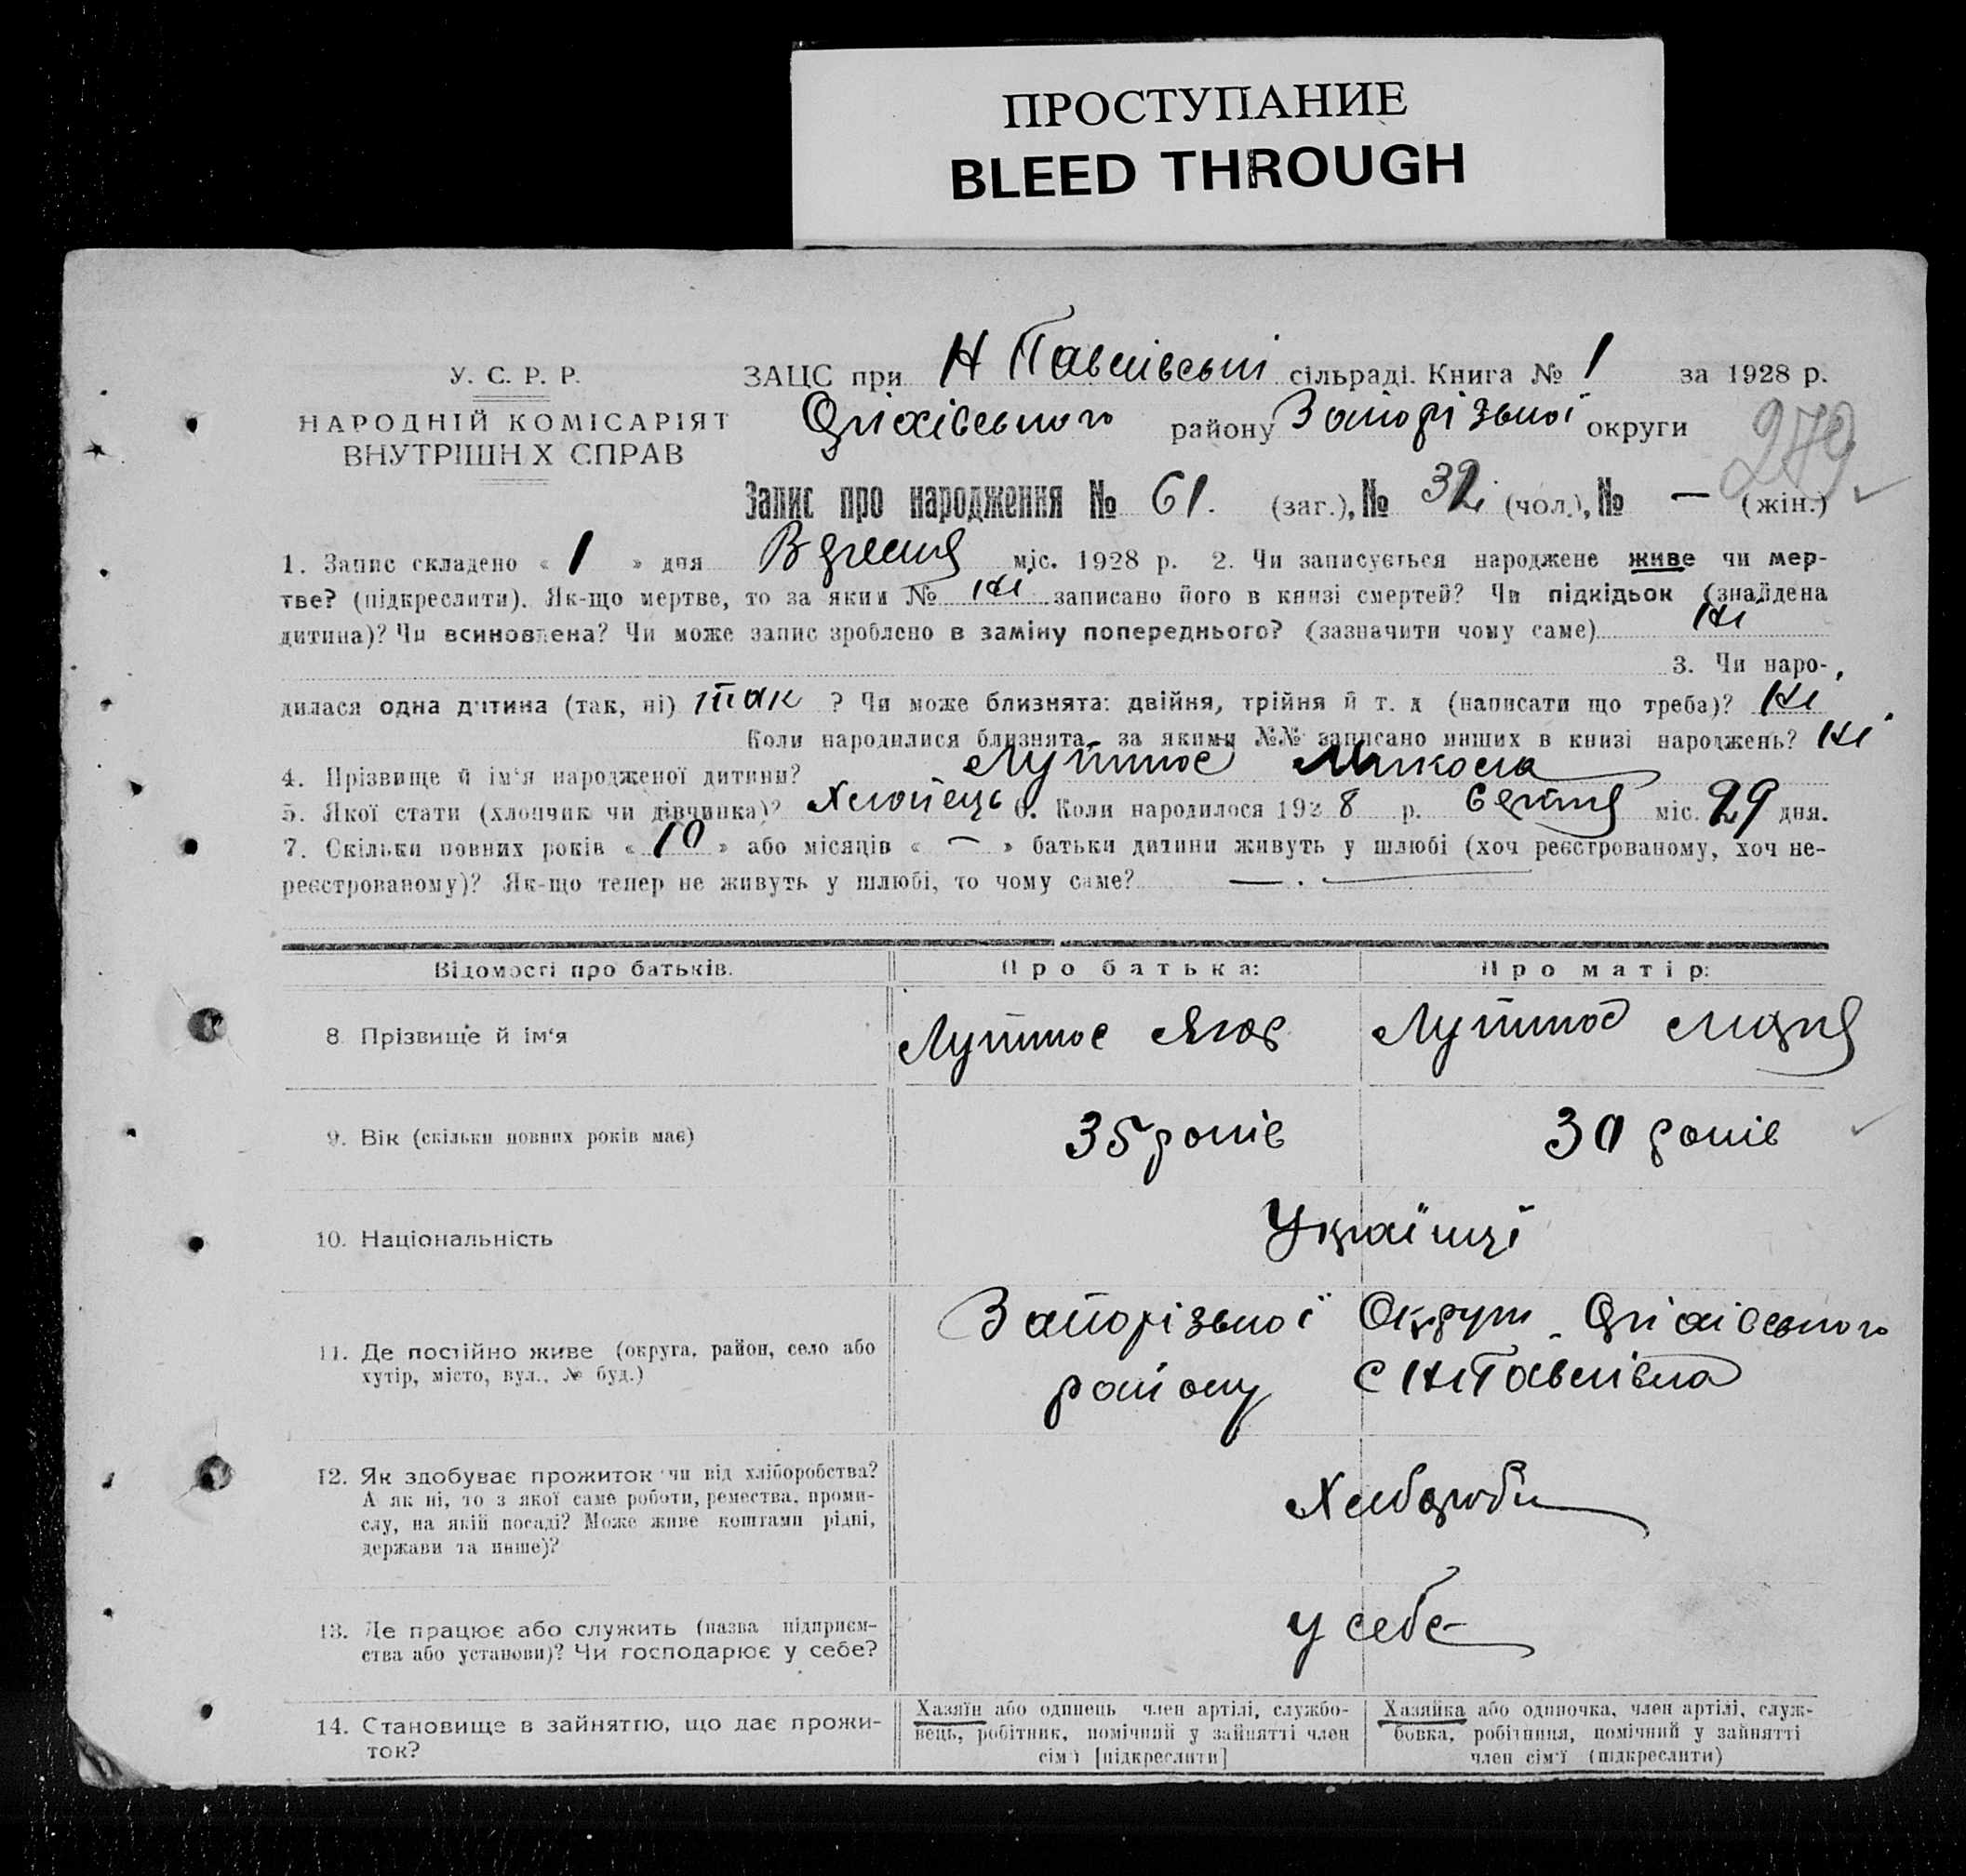 ПРОСТУПАНИЕ
BLEED THROUGH
У. С. Р. Р.
НАРОДНІЙ КОМІСАРІЯТ
ВНУТРІШН Х СПРАВ
ЗАЦС при Н Павлівські сільраді. Книга № 1 за 1928 р.
Оріхівського району Запорізької округи
279
Запис про народження № 61. (заг.), № 32 (чол.), № — (жін.)
1. Запис складено « 1 » дня Вересня міс. 1928 р. 2. Чи записується народжене живе чи мер-
тве? (підкреслити). Як-що мертве, то за яким № ні записано його в книзі смертей? Чи підкідьок (знайдена
дитина)? Чи всиновлена? Чи може запис зроблено в заміну попереднього? (зазначити чому саме) ні
3. Чи наро-
дилася одна дитина (так, ні) так ? Чи може близнята: двійня, трійня й т. д (написати що треба)? ні
Коли народилися близнята, за якими №№ записано инших в книзі народжень? ні
4. Прізвище й ім‘я народженої дитини? Микола
5. Якої стати (хлопчик чи дівчинка)? Хлопець 6. Коли народилося 1928 р. серпня міс. 29 дня.
7. Скільки повних років « 10 » або місяців « — » батьки дитини живуть у шлюбі (хоч реєстрованому, хоч не-
реєстрованому)? Як-що тепер не живуть у шлюбі, то чому саме? —
Відомості про батьків. Про батька: Про матір:
8. Прізвище й ім‘я
9. Вік (скільки повних років має) 35 років 30 років
10. Національність Українці
11. Де постійно живе (округа, район, село або
хутір, місто, вул., № буд.)
Запорізької Округи Оріхівського
району с Н Павлівка
12. Як здобуває прожиток чи від хліборобства?
А як ні, то з якої саме роботи, ремества, проми-
слу, на якій посаді? Може живе коштами рідні,
держави та инше)?
Хлібороби
13. Де працює або служить (назва підприєм-
ства або установи)? Чи господарює у себе?
у себе
14. Становище в зайняттю, що дає прожи-
ток?
Хазяїн або одинець член артілі, службо-
вець, робітник, помічний у зайнятті член
сім‘ї [підкреслити]
Хазяйка або одиночка, член артілі, служ-
бовка, робітниця, помічний у зайнятті
член сім‘ї (підкреслити)